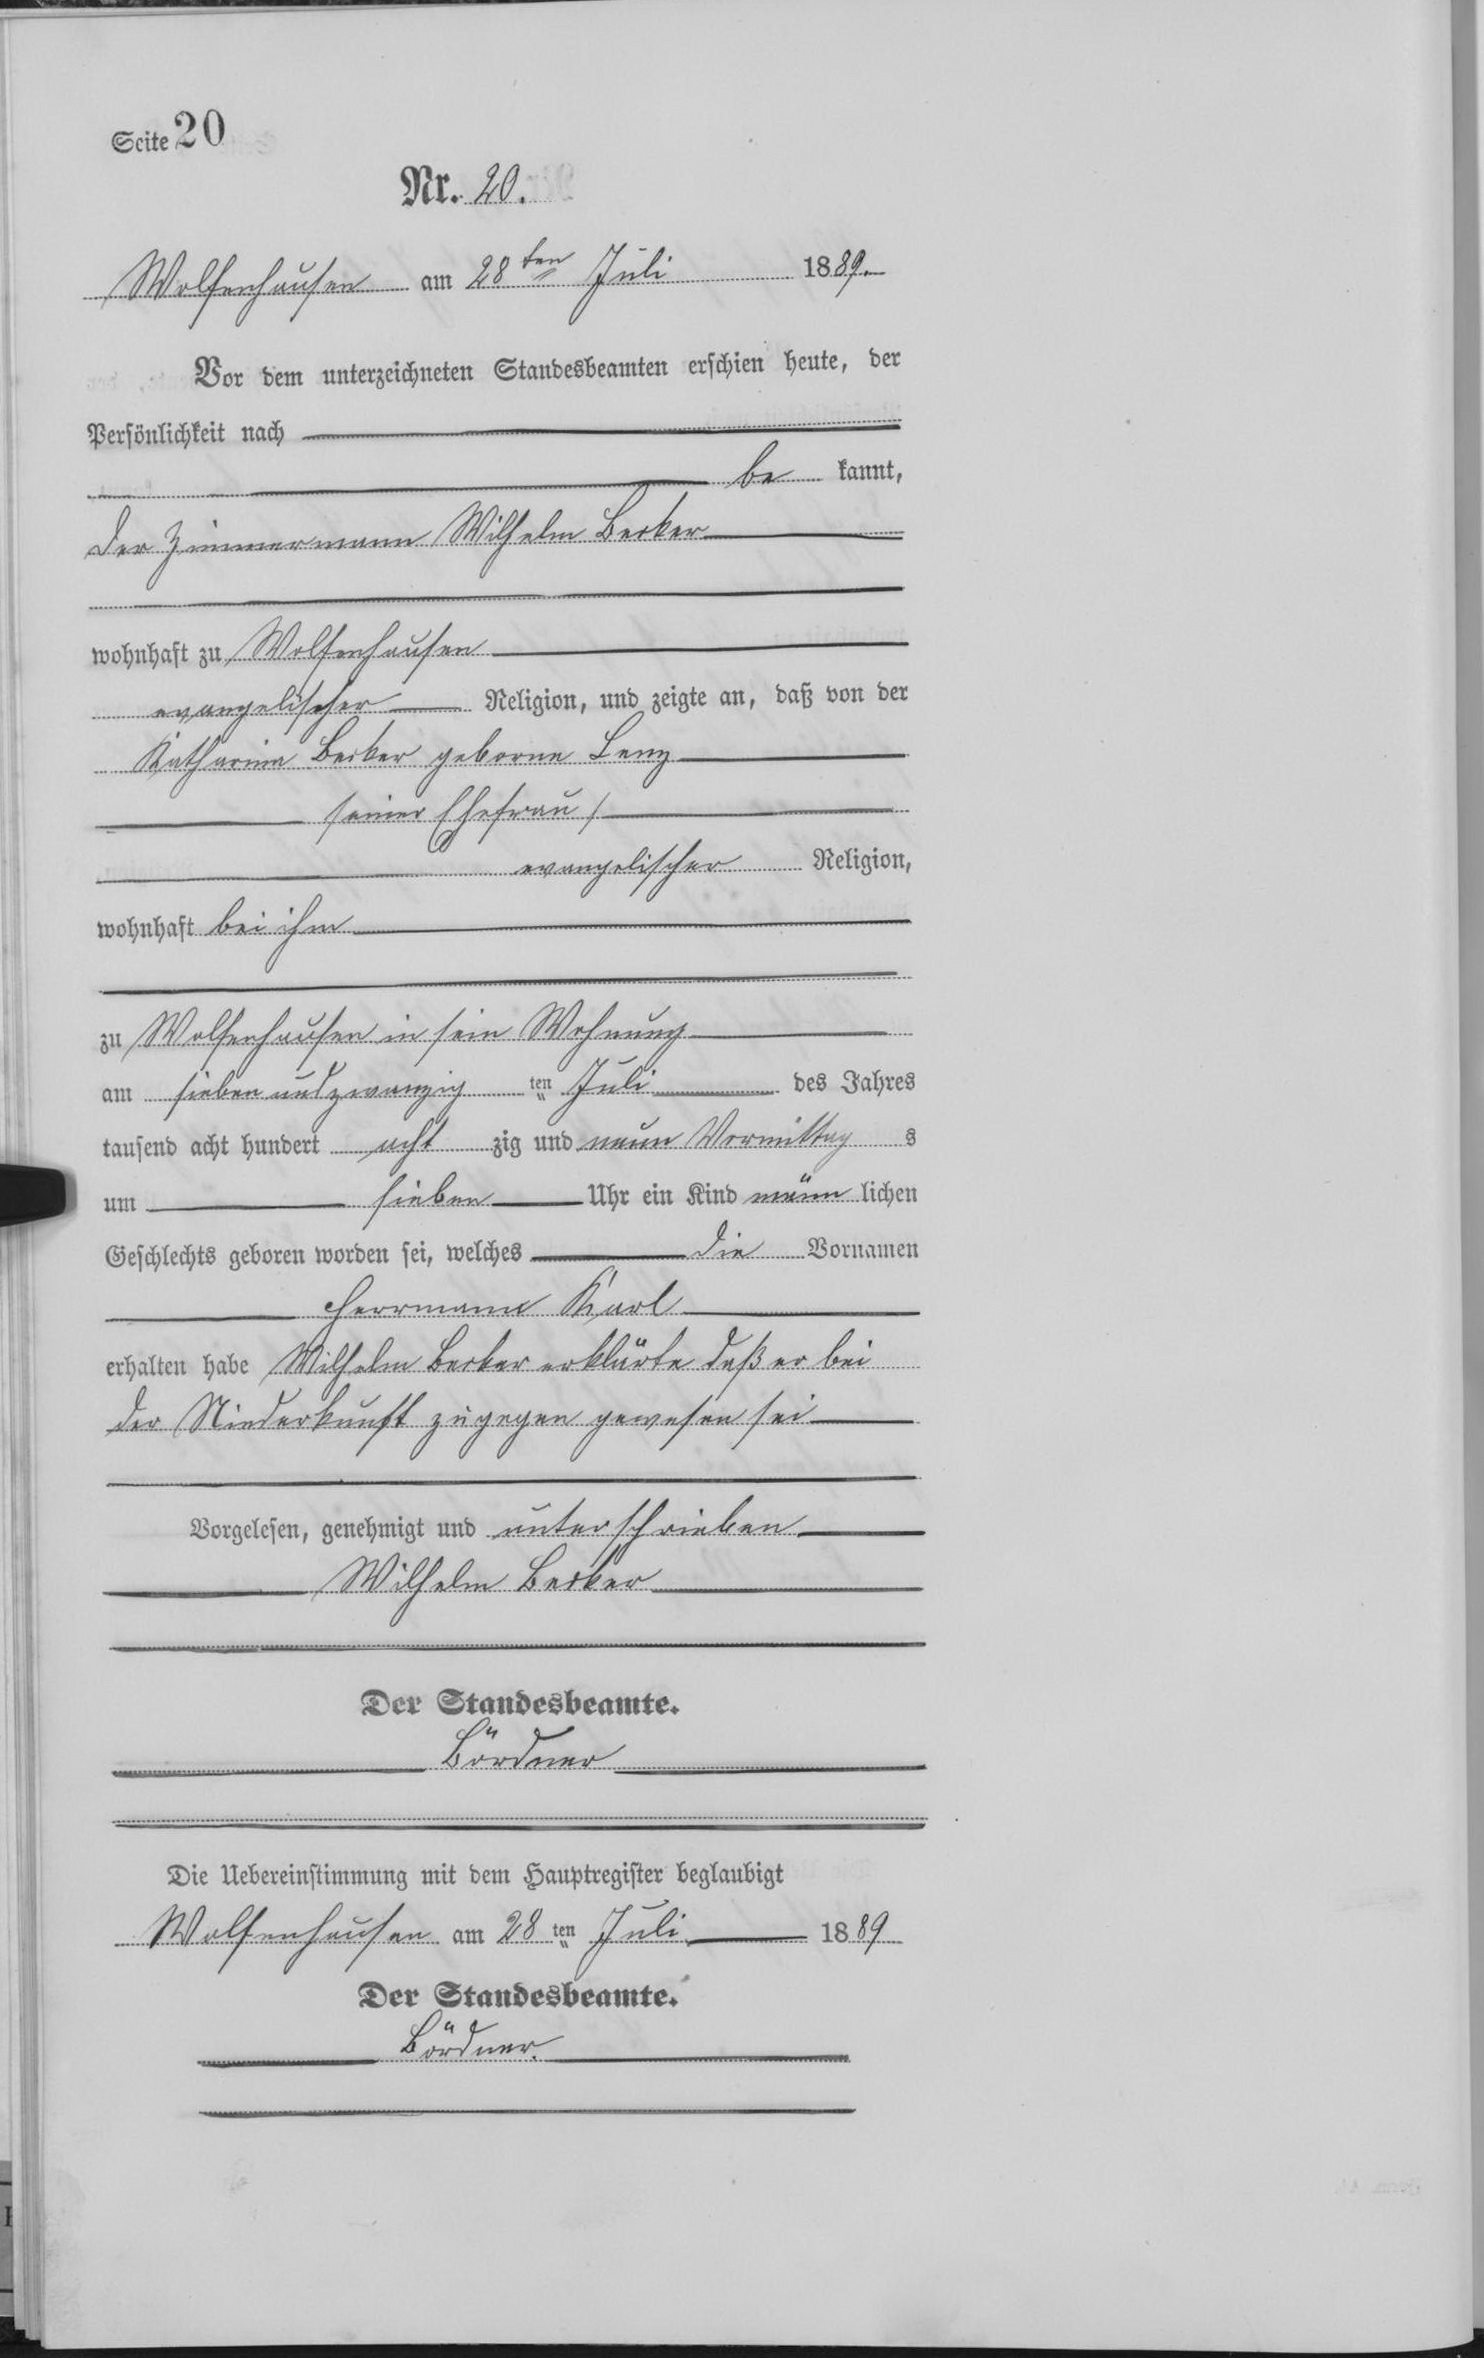 Seite 20
Nr. 20.
Wolfenhausen am 28ten Juli 1889.
Vor dem unterzeichneten Standesbeamten erschien heute, der
Persönlichkeit nach
be kannt,
der Zimmermann Wilhelm Becker
wohnhaft zu Wolfenhausen
evangelischer Religion, und zeigte an, daß von der
Katharina Becker geborne Lenz
seiner Ehefrau
evangelischer Religion,
wohnhaft bei ihm
zu Wolfenhausen in sein Wohnung
am sieben und zwanzig ten Juli des Jahres
tausend acht hundert acht zig und neun Vormittag s
um sieben Uhr ein Kind männ lichen
Geschlechts geboren worden sei, welches die Vornamen
Herrmann Karl
erhalten habe Wilhelm Becker erklärte daß er bei
der Niederkunft zugegen gewesen sei
Vorgelesen, genehmigt und unterschrieben
Wilhelm Becker
Der Standesbeamte.
Bördner
Die Uebereinstimmung mit dem Hauptregister beglaubigt
Wolfenhausen am 28 ten Juli 1889
Der Standesbeamte.
Bördner.